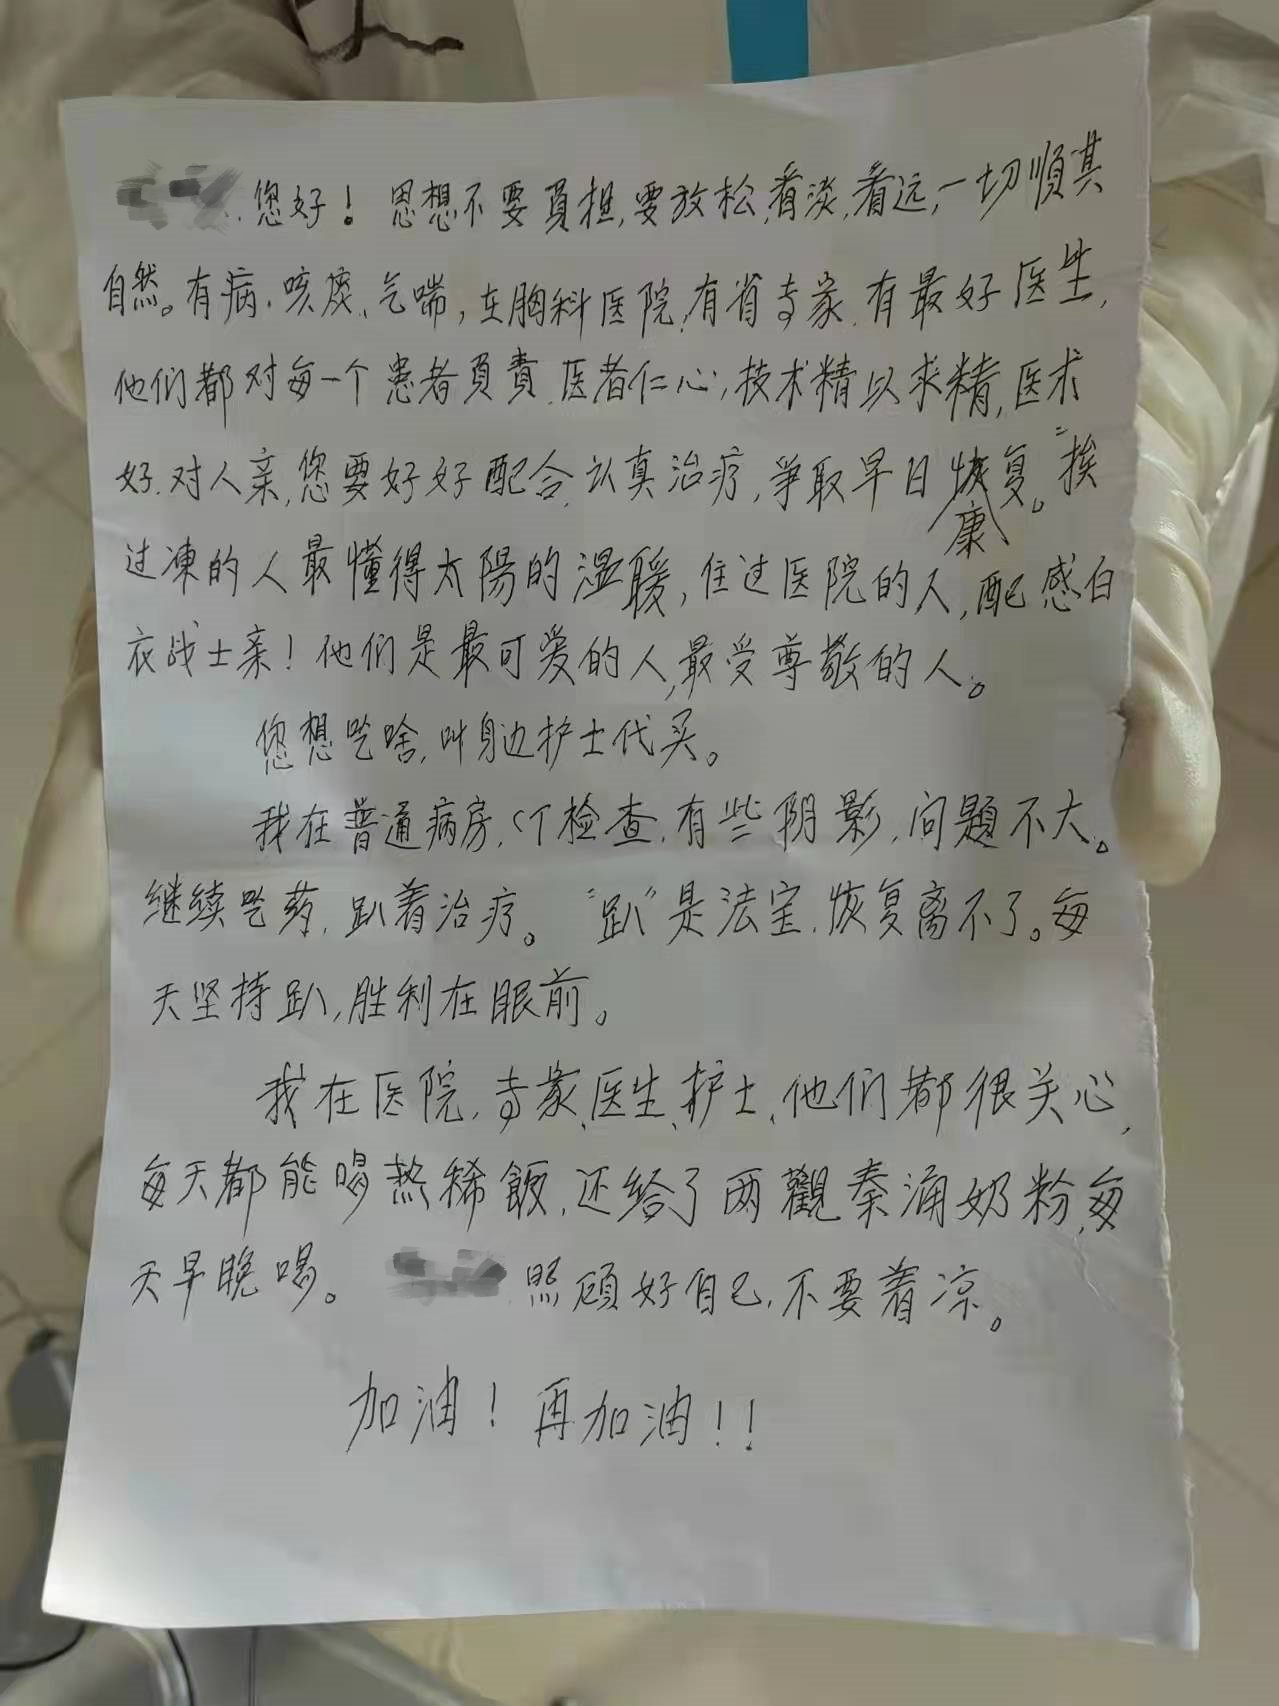 您好！思想不要負担，要放松，看淡，看远，一切順其
自然。有病、咳痰、气喘，在胸科医院，有省专家，有最好医生，
他们都对每一个患者負責，医者仁心，技术精以求精，医术
好，对人亲，您要好好配合，认真治疗，争取早日康恢复。“挨
过凍的人最懂得太陽的温暖，住过医院的人，配感白
衣战士亲！他们是最可爱的人，最受尊敬的人。
您想吃啥，叫身边护士代买。
我在普通病房，CT检查，有些阴影，问題不大。
继续吃药，趴着治疗。“趴”是法宝，恢复离不了。每
天坚持趴，胜利在眼前。
我在医院，专家、医生、护士、他们都很关心，
每天都能喝热稀飯，还给了两觀秦涌奶粉，每
天早晚喝。照顾好自己，不要着凉。
加油！再加油！！